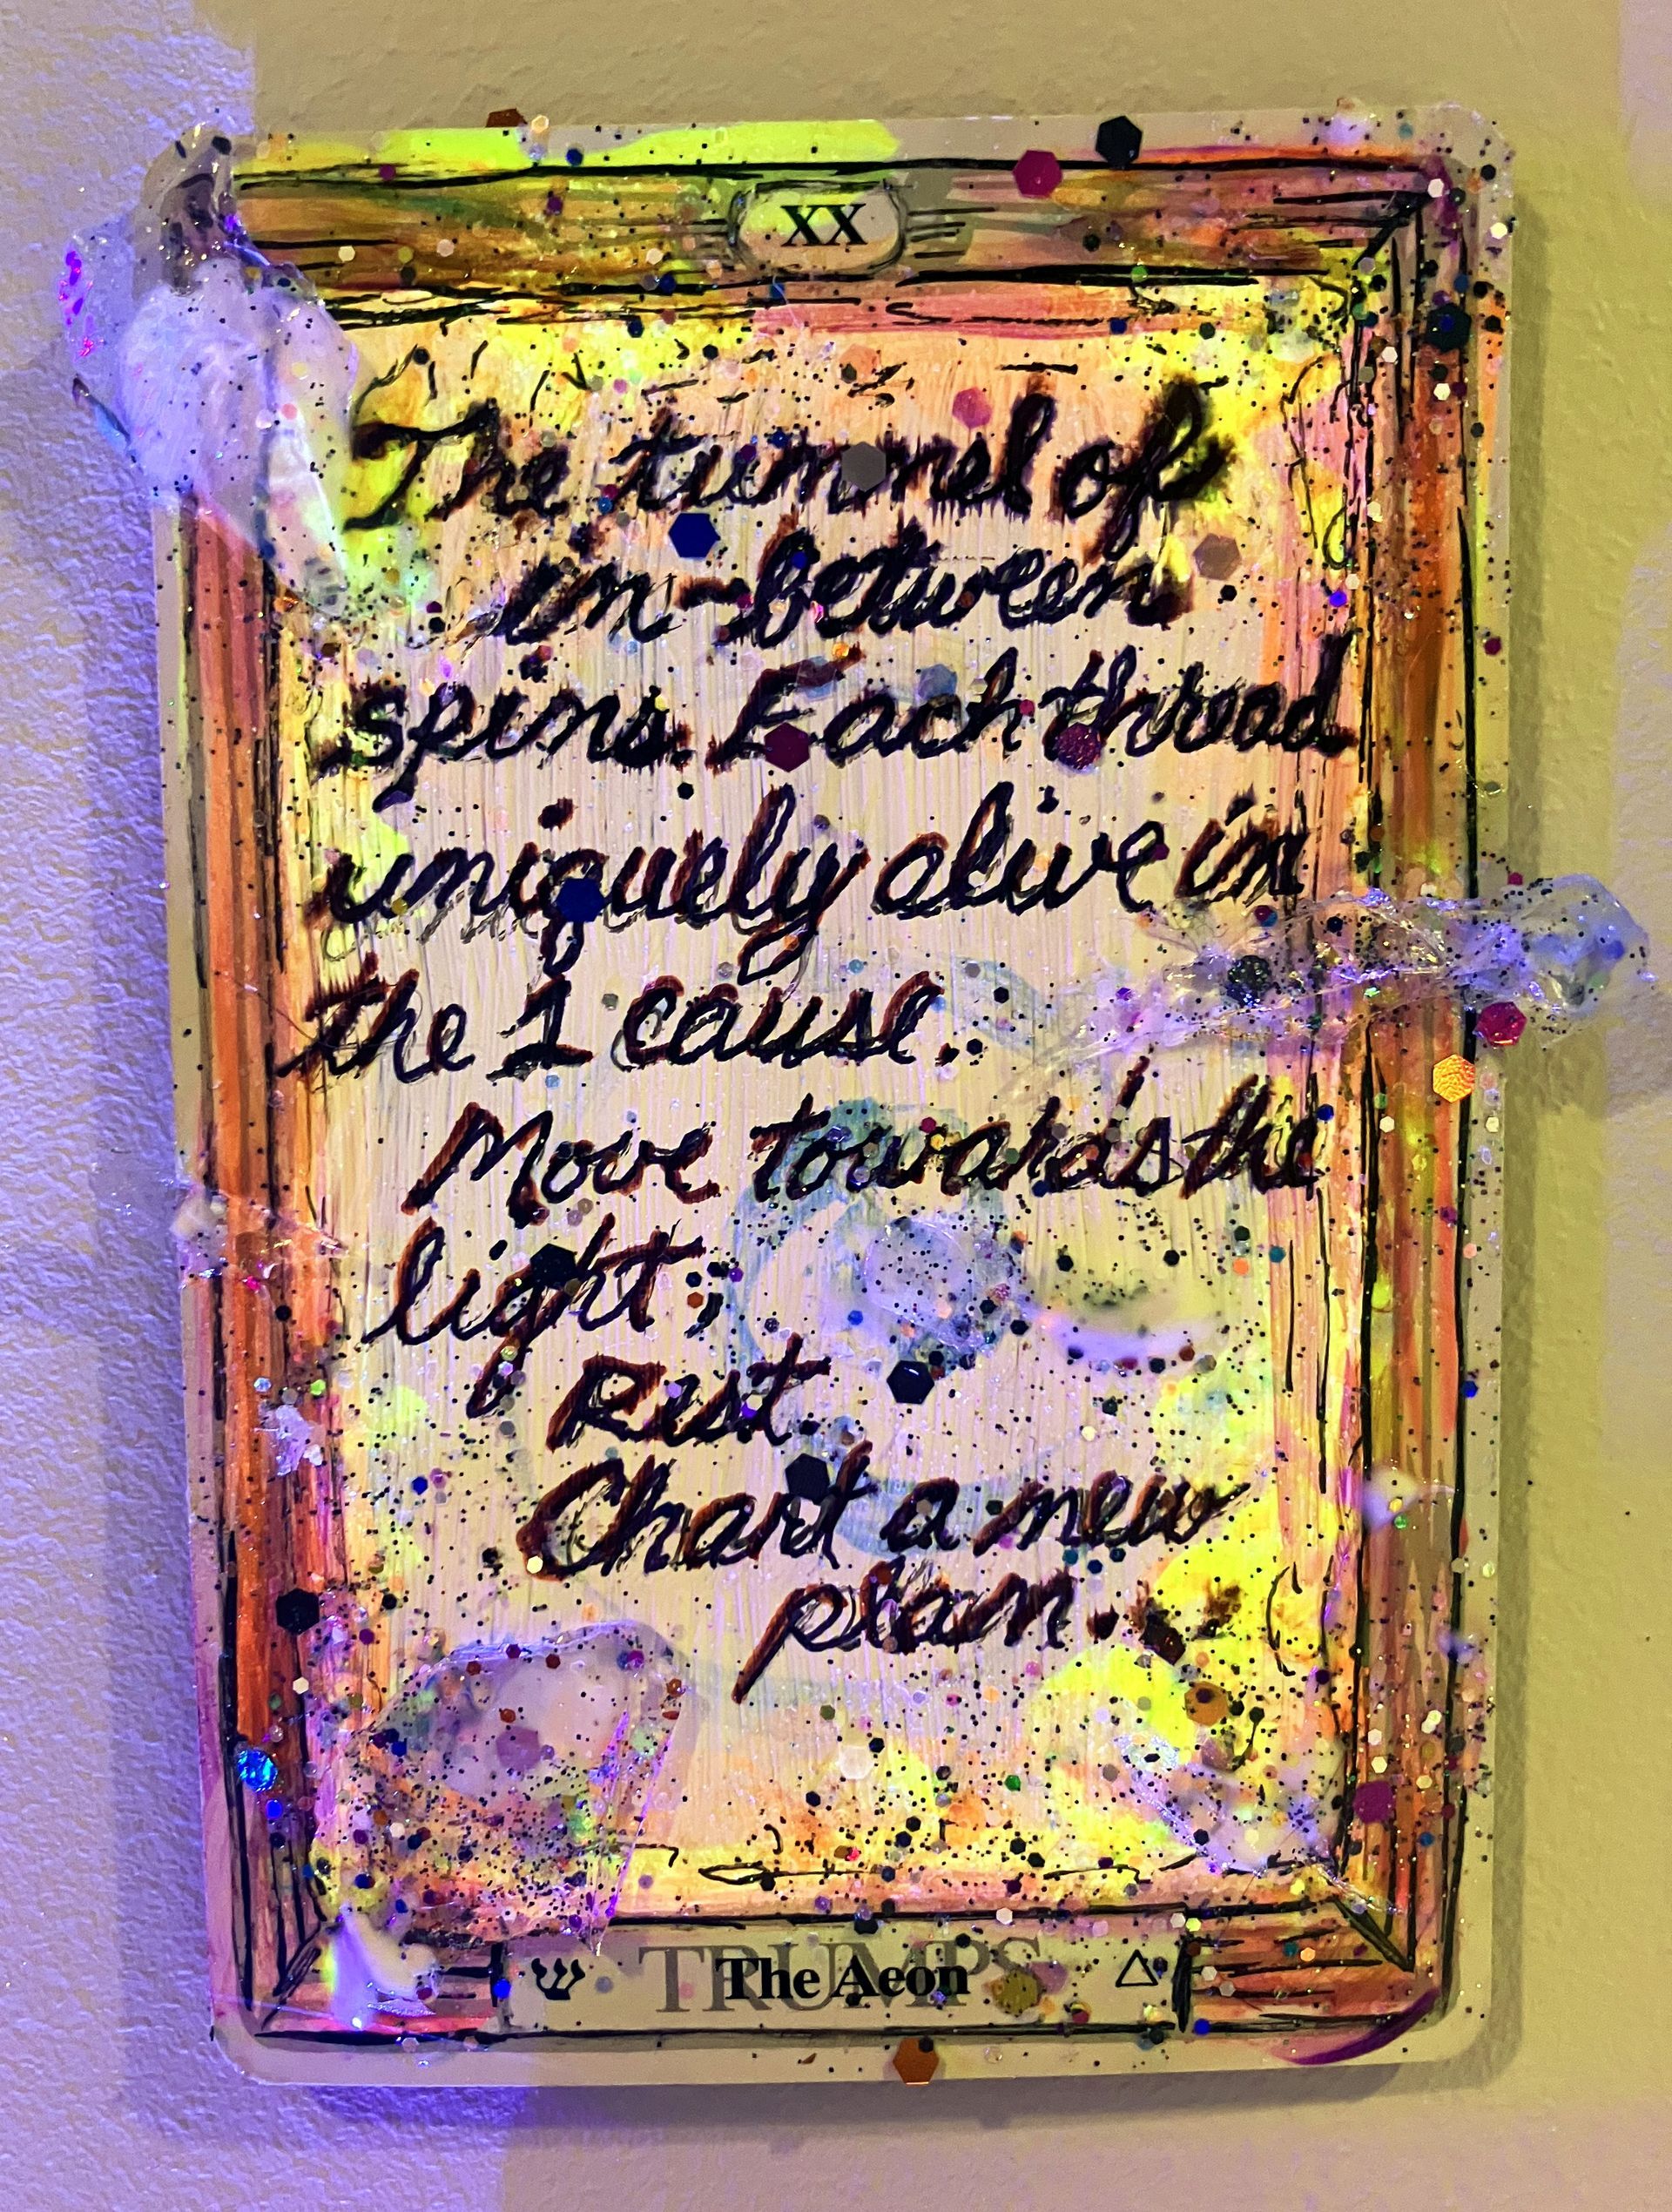 XX
The tunnel of
in-between
spins. Each thread
uniquely alive in
the 1 cause.
Move towards the
light;
Rest.
Chart a new
plan.
ש TRUMPS The Aeon △